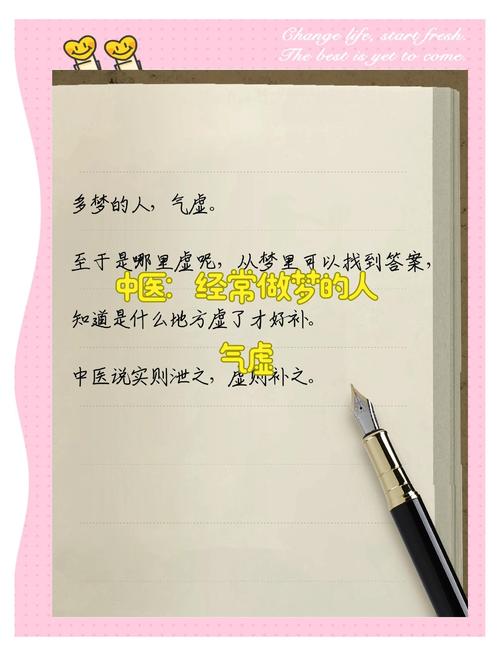 Change life, start fresh.
The best is yet to come.
多梦的人，气虚。
至于是哪里虚呢，从梦里可以找到答案，
中医：经常做梦的人
知道是什么地方虚了才好补。
气虚
中医说实则泄之，虚则补之。